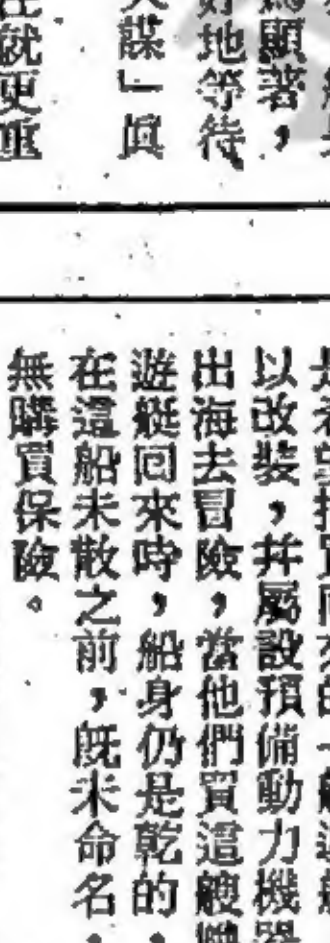 爲顯著，
好地等待
謀」眞
在就更重
以改裝，幷屬設預備動力機器
出海去冒險，當他們買這艘
遊艇回來時，船身仍是乾的，
在這船未散之前，旣未命名，
無購買保險。